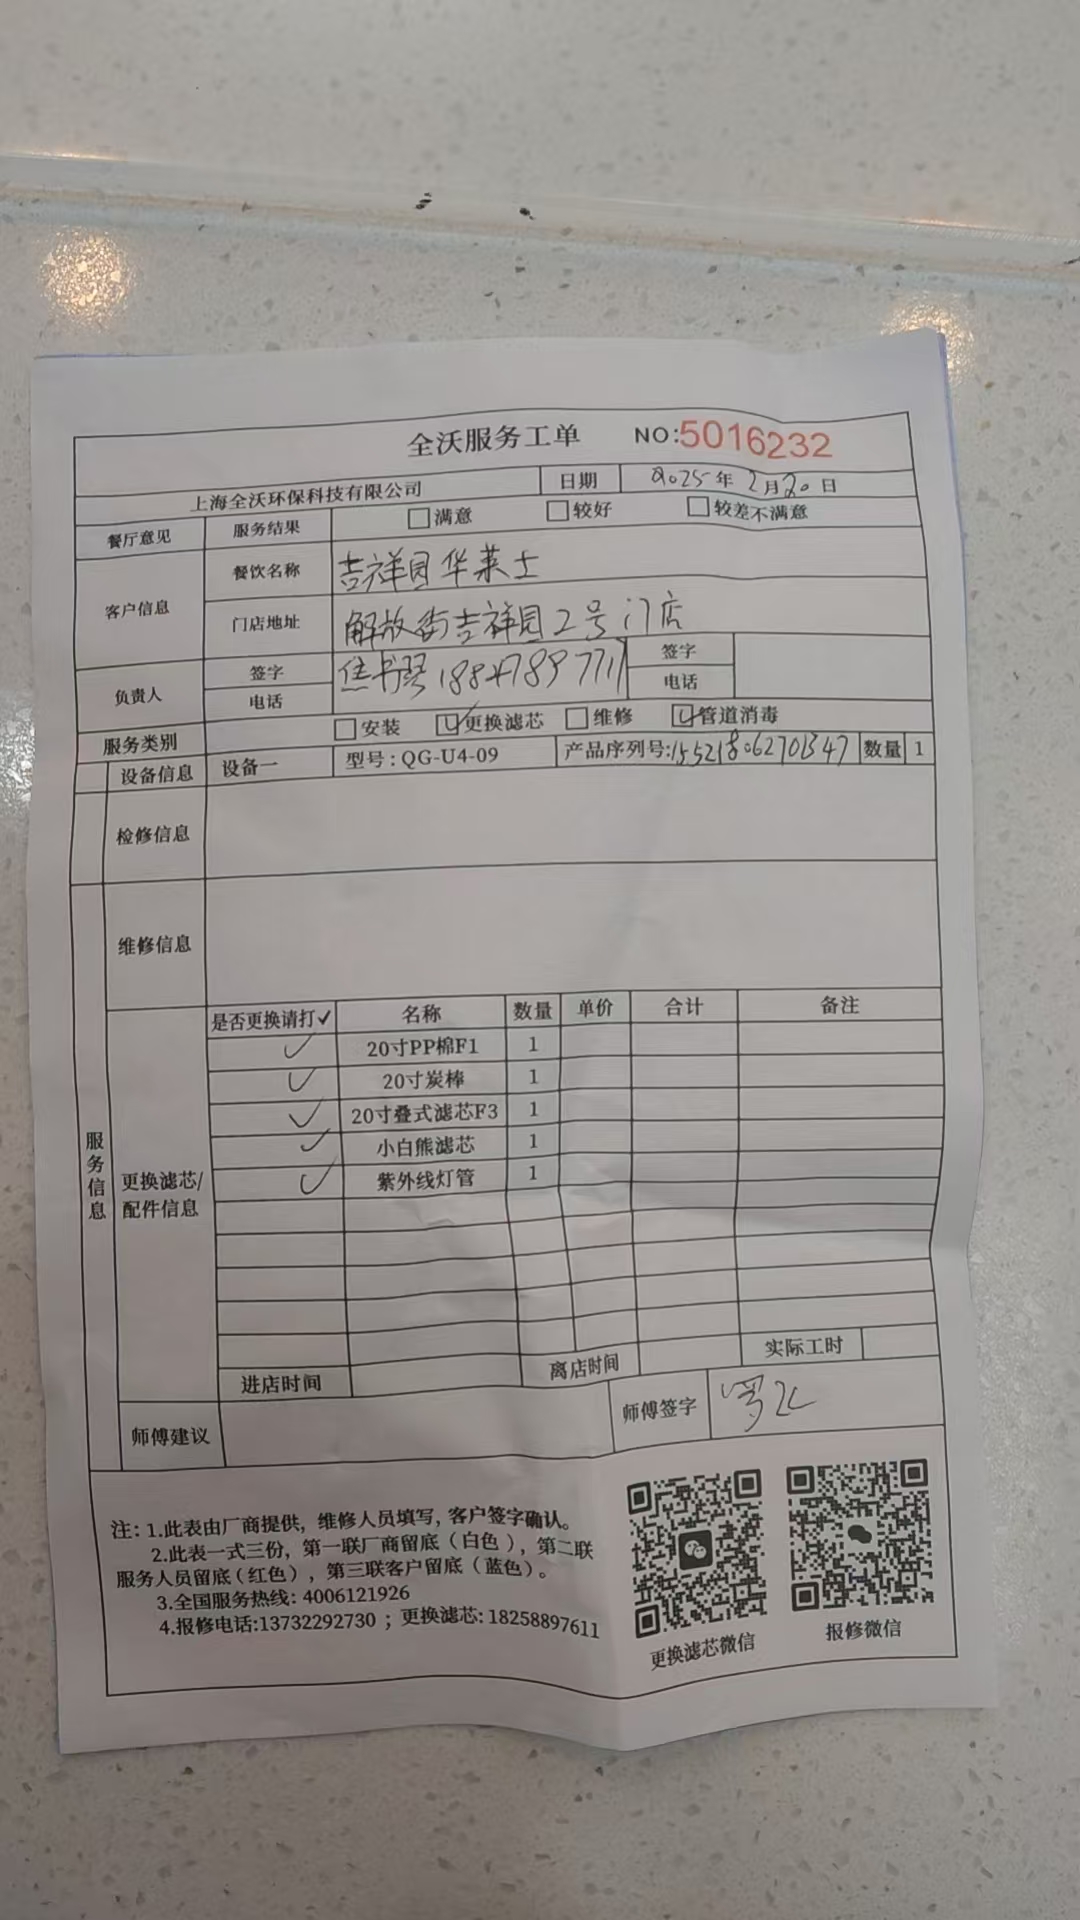 全沃服务工单 NO:5016232
上海全沃环保科技有限公司 日期 2025年2月20日
餐厅意见 服务结果 满意 较好 较差不满意
客户信息 餐饮名称 吉祥园华莱士
门店地址 解放街吉祥园2号门店
负责人 签字 签字
电话 电话
服务类别 安装 更换滤芯 维修 管道消毒
设备信息 设备一 型号:QG-U4-09 产品序列号: 数量 1
检修信息
维修信息
服务信息
更换滤芯/
配件信息
是否更换请打✓ 名称 数量 单价 合计 备注
✓ 20寸PP棉F1 1
✓ 20寸炭棒 1
✓ 20寸叠式滤芯F3 1
✓ 小白熊滤芯 1
✓ 紫外线灯管 1
进店时间 离店时间 实际工时
师傅建议 师傅签字
注:1.此表由厂商提供,维修人员填写,客户签字确认。
2.此表一式三份,第一联厂商留底(白色),第二联
服务人员留底(红色),第三联客户留底(蓝色)。
3.全国服务热线:4006121926
4.报修电话:13732292730;更换滤芯:18258897611
更换滤芯微信 报修微信